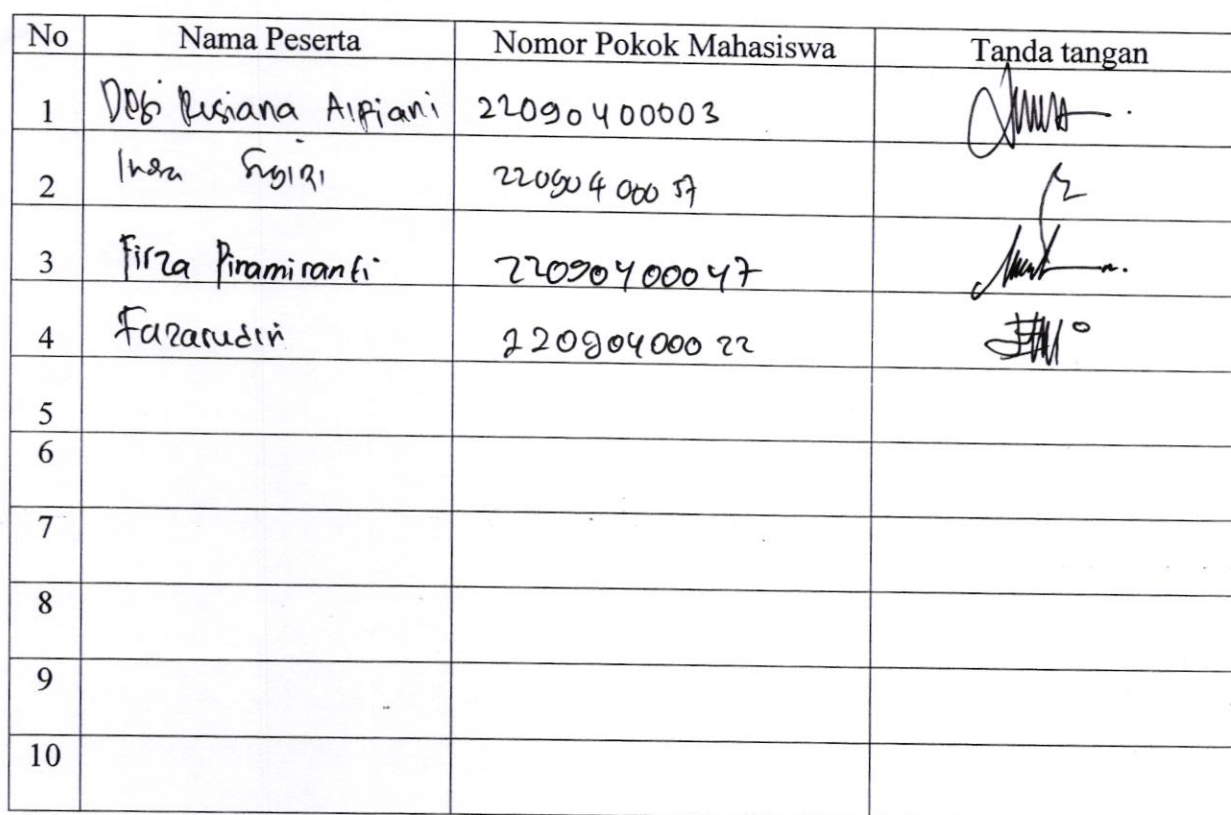 No Nama Peserta Nomor Pokok Mahasiswa Tanda tangan
1 Risiana Alfiani 22090400003
2 Indra 22090400057
3 Firza Piramiranti 22090400047
4 Fazarudin 22090400022
5
6
7
8
9
10